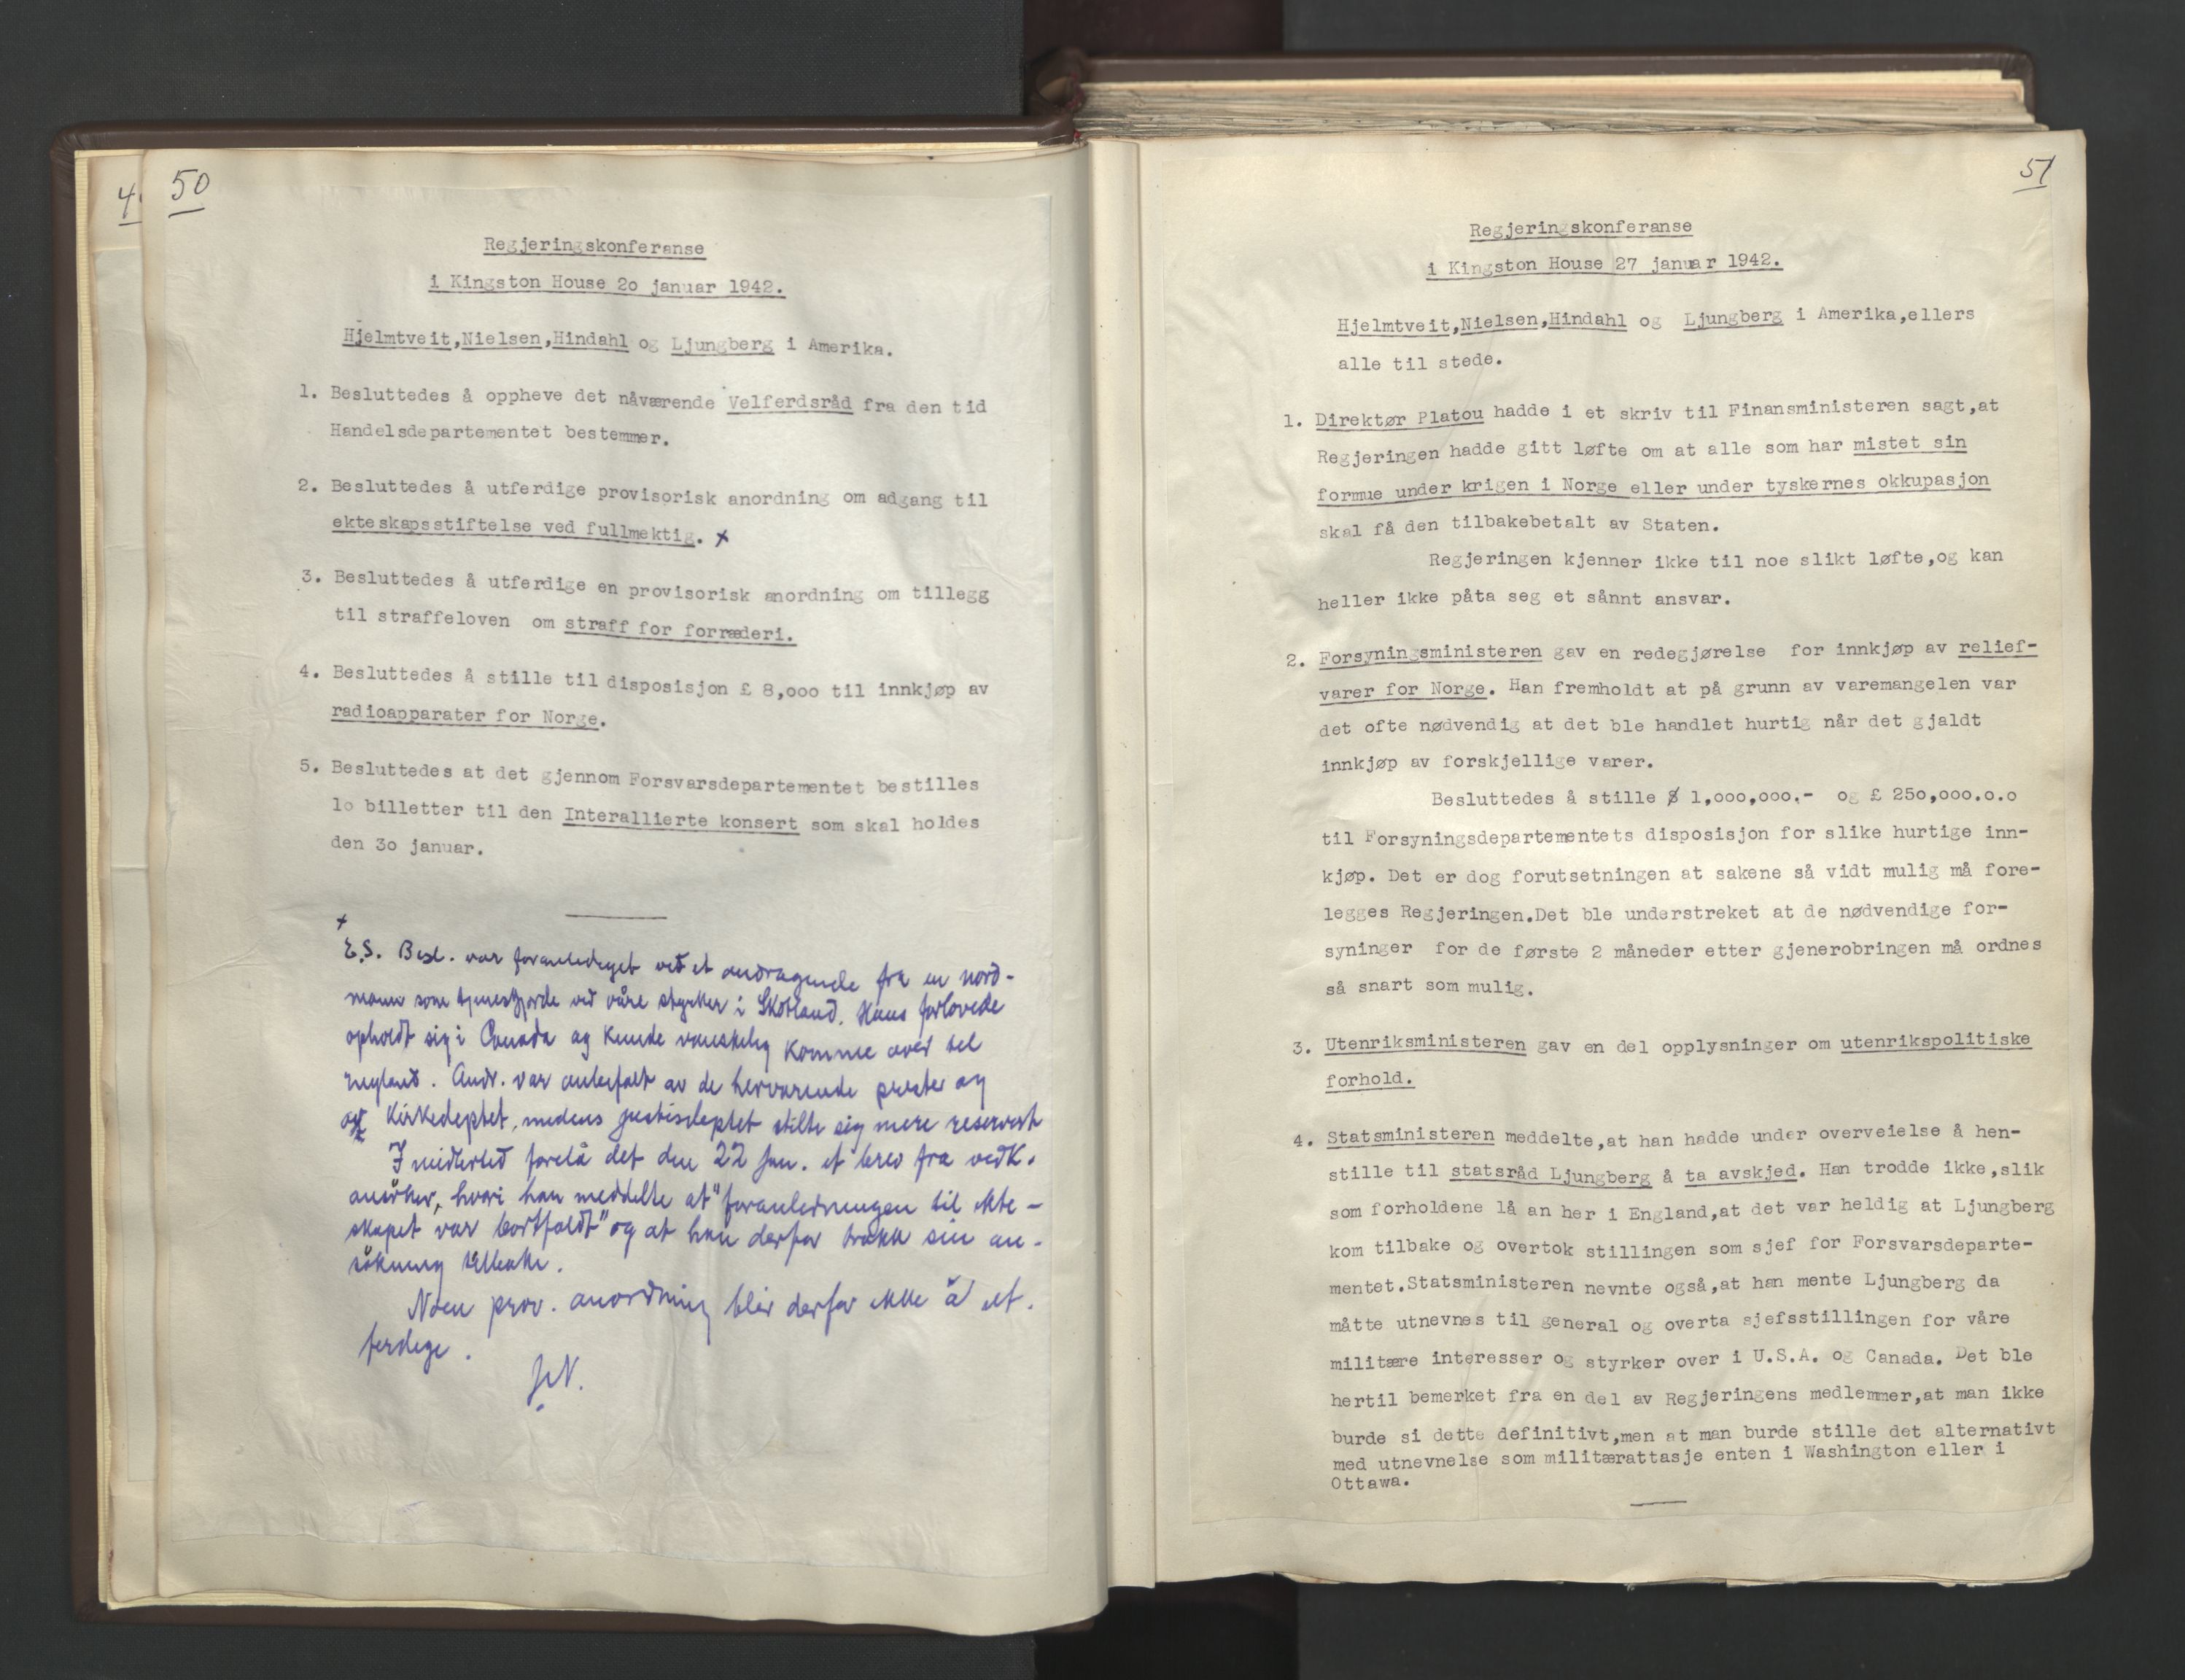 4
50
Regjeringskonferanse
i Kingston House 2o januar 1942.
Hjelmtveit,Nielsen,Hindahl og Ljungberg i Amerika.
1. Besluttedes å oppheve det nåværende Velferdsråd fra den tid
Handelsdepartementet bestemmer.
2. Besluttedes å utferdige provisorisk anordning om adgang til
ekteskapsstiftelse ved fullmektig. x
3. Besluttedes å utferdige en provisorisk anordning om tillegg
til straffeloven om straff for forræderi.
4. Besluttedes å stille til disposisjon £ 8,ooo til innkjøp av
radioapparater for Norge.
5. Besluttedes at det gjennom Forsvarsdepartementet bestilles
1o billetter til den Interallierte konsert som skal holdes
den 3o januar.
x
E.S. Besl. var foranlediget ved et andragende fra en nord-
mann som tjenestgjorde ved våre styrker i Skotland. Hans forlovede
opholdt sig i Canada og kunde vanskelig komme over til
England. Andr. var anbefalt av de herværende prester og
av Kirkedeptet, medens justisdeptet stilte sig mere reservert
Imidlertid forelå det den 22 jan. et brev fra vedk.
ansöker, hvori han meddelte at "foranledningen til ekte-
skapet var bortfaldt" og at han derfor trakk sin an-
sökning tilbake.
Noen prov. anordning blir derfor ikke å ut.
ferdige.
51
Regjeringskonferanse
i Kingston House 27 januar 1942.
Hjelmtveit,Nielsen,Hindahl og Ljungberg i Amerika,ellers
alle til stede.
1. Direktør Platou hadde i et skriv til Finansministeren sagt,at
Regjeringen hadde gitt løfte om at alle som har mistet sin
formue under krigen i Norge eller under tyskernes okkupasjon
skal få den tilbakebetalt av Staten.
Regjeringen kjenner ikke til noe slikt løfte,og kan
heller ikke påta seg et sånnt ansvar.
2. Forsyningsministeren gav en redegjørelse for innkjøp av relief-
varer for Norge. Han fremholdt at på grunn av varemangelen var
det ofte nødvendig at det ble handlet hurtig når det gjaldt
innkjøp av forskjellige varer.
Besluttedes å stille $ 1,ooo,ooo.- og £ 25o,ooo.o.o
til Forsyningsdepartementets disposisjon for slike hurtige inn-
kjøp. Det er dog forutsetningen at sakene så vidt mulig må fore-
legges Regjeringen.Det ble understreket at de nødvendige for-
syninger for de første 2 måneder etter gjenerobringen må ordnes
så snart som mulig.
3. Utenriksministeren gav en del opplysninger om utenrikspolitiske
forhold.
4. Statsministeren meddelte,at han hadde under overveielse å hen-
stille til statsråd Ljungberg å ta avskjed. Han trodde ikke,slik
som forholdene lå an her i England,at det var heldig at Ljungberg
kom tilbake og overtok stillingen som sjef for Forsvarsdeparte-
mentet.Statsministeren nevnte også,at han mente Ljungberg da
måtte utnevnes til general og overta sjefsstillingen for våre
militære interesser og styrker over i U.S.A. og Canada. Det ble
hertil bemerket fra en del av Regjeringens medlemmer,at man ikke
burde si dette definitivt,men at man burde stille det alternativt
med utnevnelse som militærattasje enten i Washington eller i
Ottawa.